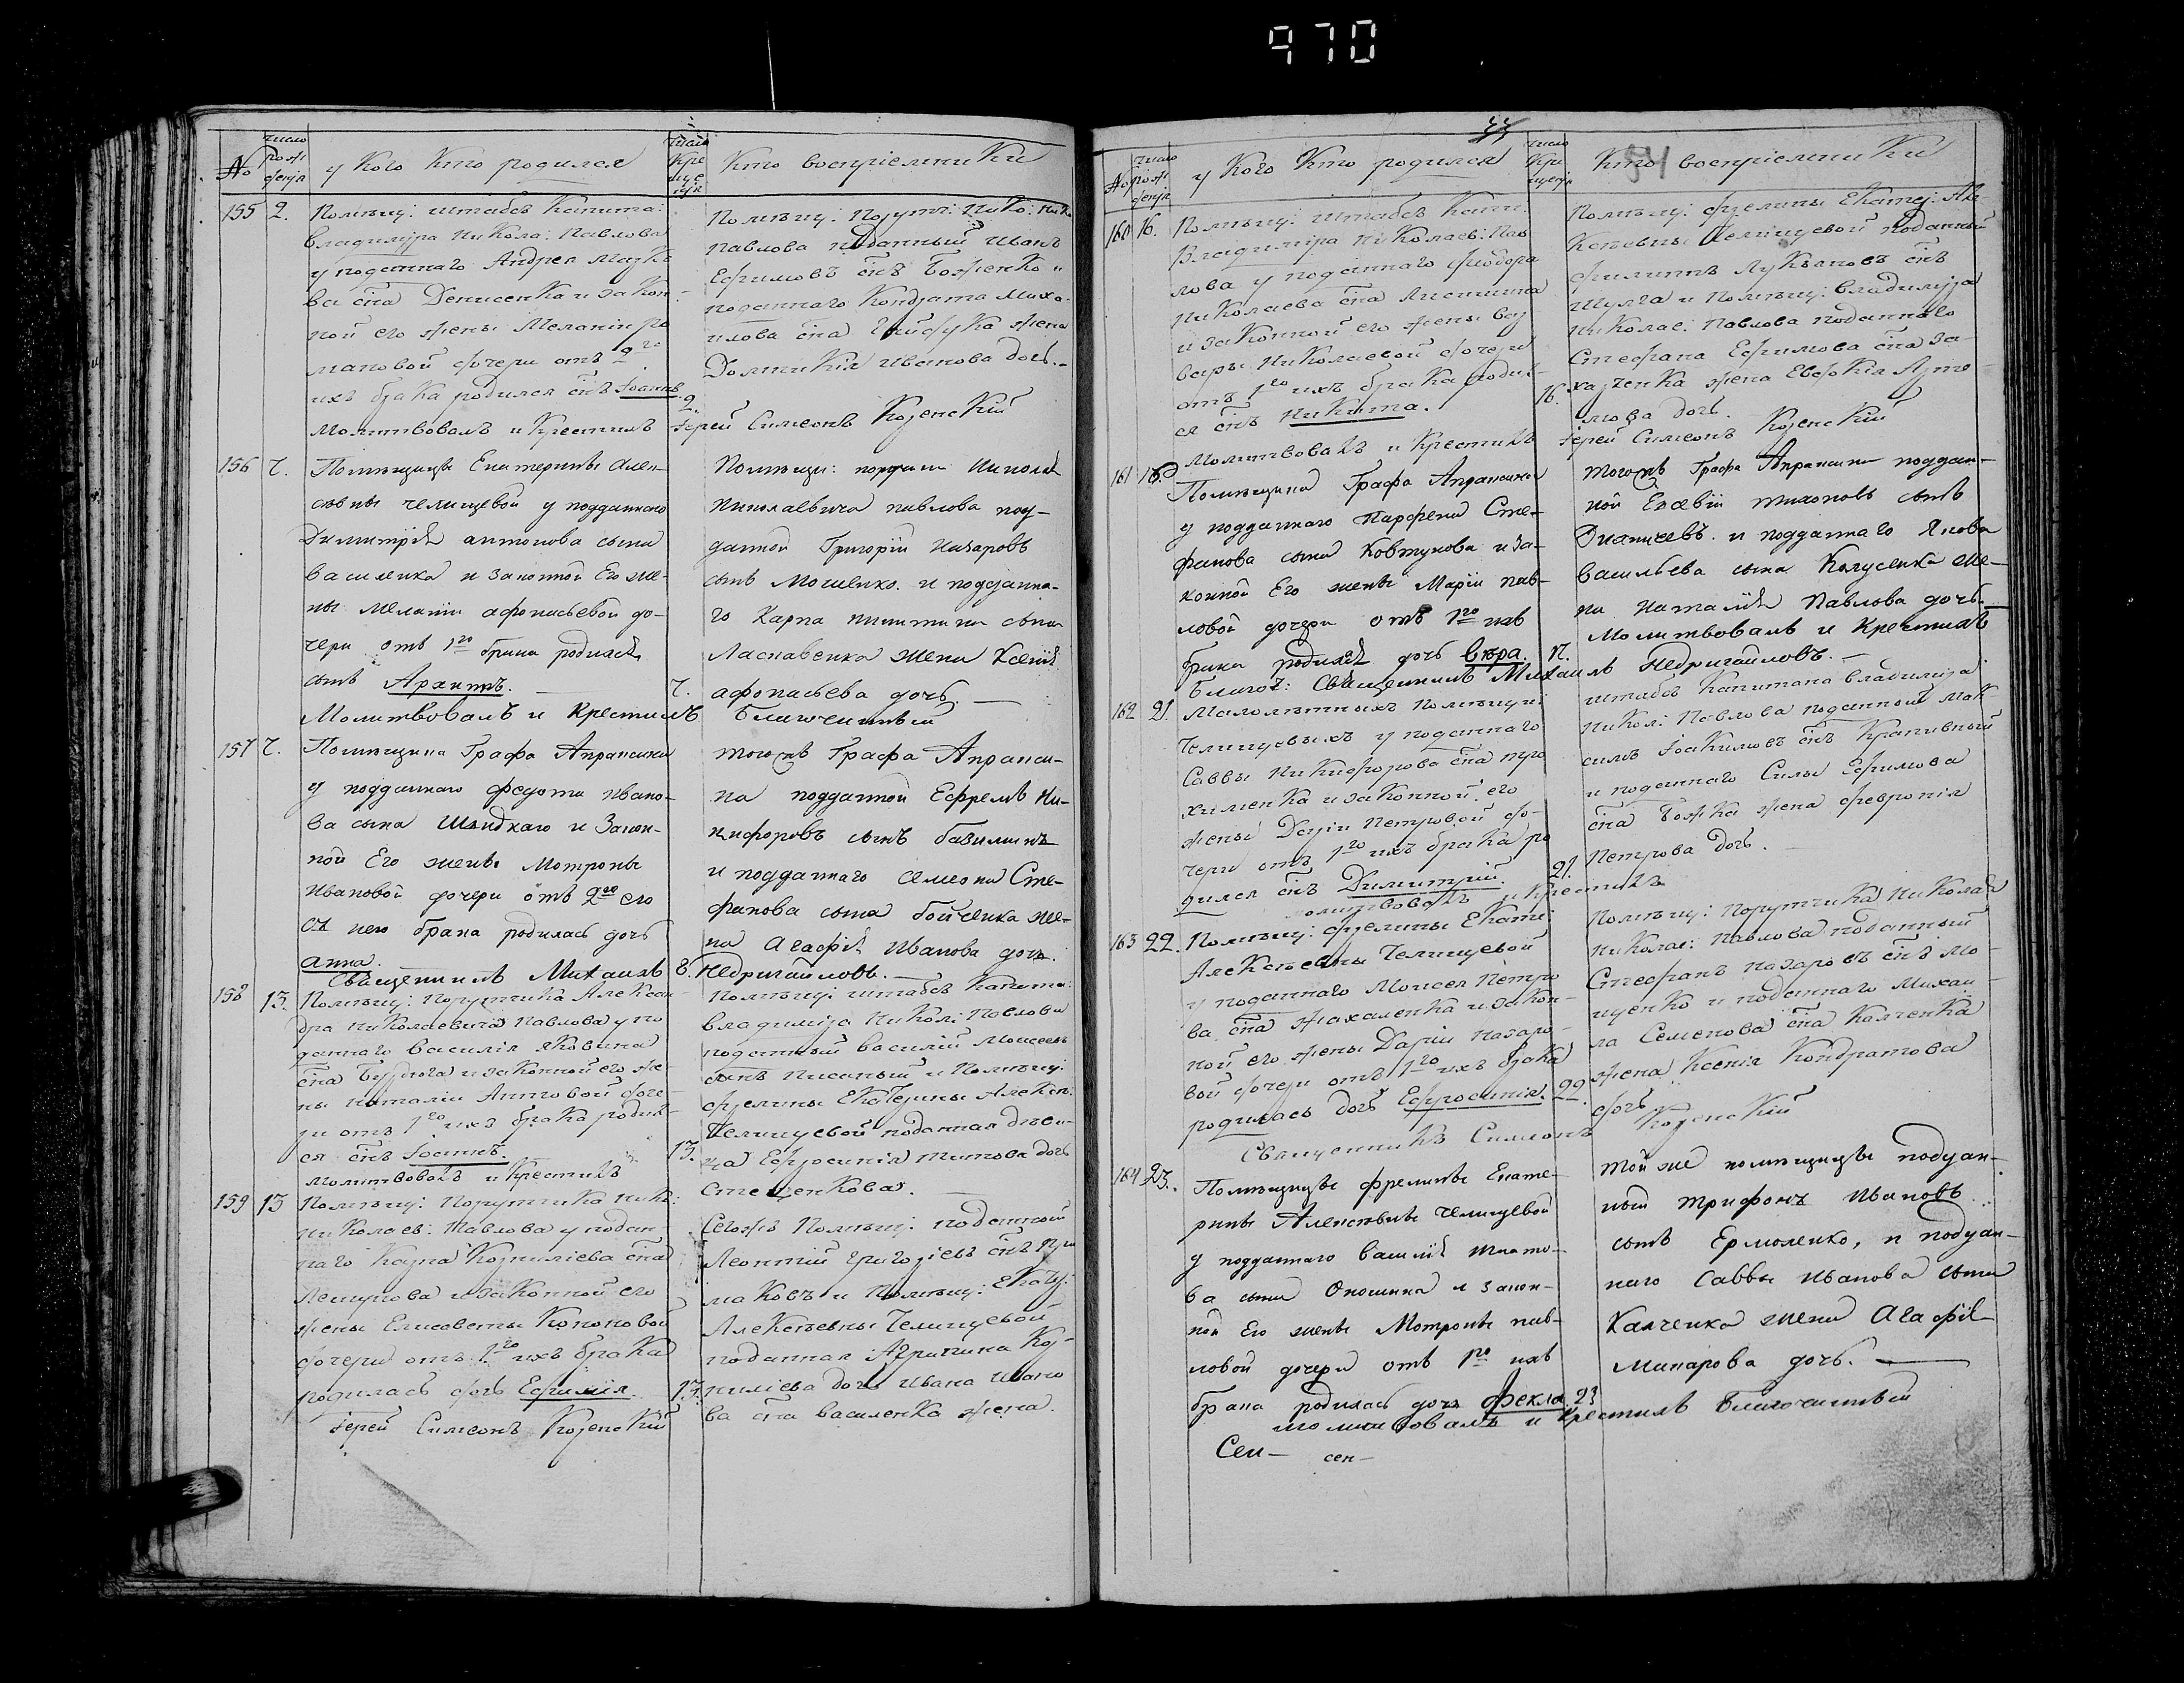 970
№
число рождения
у кого кто родился
число крещения
кто восприемники
155 2. Помѣщ: штабсъ капита:
Владимира Никола: Павлова
у поданнаго Андрея
сна Денисенка и закон-
ной его жены Меланіи Ро
мановой дочери отъ 2го
ихъ брака родился снъ Іоаннъ. 2.
Молитвовалъ и крестилъ
Помѣщ: Порутч: Нико: Нико
Павлова поданный Иванъ
Ефимовъ снъ Боженко и
поданнаго Кондрата Миха-
илова сна жена
Домникія Иванова дочь.
Іерей Симеонъ Козенскій
156 7. Помѣщицы Екатерины Алек-
сѣвны Челищевой у подданнаго
Димитрія Антонова сына
Василенка и законной Его же-
ны Меланіи Афонасьевой до-
чери отъ 1го брака родился
сынъ Архипъ. 7.
Молитвовалъ и крестилъ
Помѣщи: Николая
Николаевича Павлова под-
данной Григорій Назаровъ
сынъ Мошенко. и подданна-
го Карпа Никитина сына
жена Ксенія
Афонасьева дочь.
Благочинный
157 7. Помѣщика Графа Апраксина
у подданнаго Федота Ивано-
ва сына Швидкаго и закон-
ной Его жены Мотроны
Ивановой дочери отъ 2го его
съ нею брака родилась дочь
Анна. 8.
Священникъ Михаилъ Недригайловъ.
тогожъ Графа Апракси-
на подданной Ефремъ Ни-
кифоровъ сынъ
и подданнаго Симеона Сте-
фанова сына Бойченка же-
на Агафія Иванова дочь.
158 13. Помѣщ: Порутчика Алексан-
дра Николаевича Павлова у по
даннаго Василія Яковина
сна и законной его же-
ны Наталіи дочe-
ри отъ 1го ихъ брака родил-
ся снъ Іоаннъ. 13.
Молитвовалъ и крестилъ
Помѣщ: штабсъ капита:
Владимира Никол: Павлова
поданный Василій Моисеевъ
снъ Писаный и Помѣщ:
Фрелины Екатерины Алексѣ:
Челищевой поданная дѣви-
ца Ефросинія Титова дочь
Стеценкова.
159 13 Помѣщ: Порутчика Ник:
Николаев: Павлова у подан-
наго Карпа Корниліева сна
и законной его
жены Елисаветы Кононовой
дочери отъ 1го ихъ брака
родилась дочь Ефимія. 13.
Іерей Симеонъ Козенскій
Сегожъ Помѣщ: поданной
Леонтій Григоріевъ снъ При
маковъ и Помѣщ: Екатер:
Алексѣевны Челищевой
поданная Агрипина Кор-
ниліева дочь Ивана Ивано
ва сна Василенка жена.
№
число рожденія
у кого кто родился
число крещенія
51
кто восприемники
160 16. Помѣщ: штабсъ капи:
Владимира Николаев: Пав
лова у поданнаго Феодора
Николаева сна
и законной его жены Вар
вары Николаевой дочери
отъ 1го ихъ брака родил-
ся снъ Никита. 16.
Молитвовалъ и крестилъ
Помѣщ: Фрелины Екатер: Але
ксѣевны Челищевой поданный
Филиппъ Лукьяновъ снъ
Шулга и Помѣщ: Владимира
Николае: Павлова поданнаго
Стефана Ефимова сна За-
харченка жена Евдокія Арте-
мова дочь.
Іерей Симеонъ Козенскій
161 16. Помѣщика Графа Апраксина
у подданнаго Парфена Сте-
фанова сына Ковтунова и за-
конной Его жены Маріи Пав-
ловой дочери отъ 1го ихъ
брака родилась дочь Вѣра. 17.
Благоч: Священникъ Михаилъ Недригайловъ.
тогожъ Графа Апраксина поддан-
ной Тихоновъ сынъ
и подданнаго Якова
Васильева сына же-
на Наталія Павлова дочь.
Молитвовалъ и Крестилъ
162 21. Малолѣтныхъ Помѣщи:
Челищевыхъ у поданнаго
Саввы Никифорова сна Тро
хименка и законной его
жены Даріи Петровой до-
чери отъ 1го ихъ брака ро
дился снъ Димитрій. 21.
Молитвовалъ и крестилъ
штабсъ капитана Владимира
Никол: Павлова поданный Мак
симъ Іоакимовъ снъ Крапивный
и поданнаго Силы Ефимова
сна Божка жена Февронія
Петрова дочь.
163 22. Помѣщ: Фрелины Екате:
Алексѣевны Челищевой
у поданнаго Моисея Петро
ва сна и закон-
ной его жены Даріи Назаро-
вой дочери отъ 1го ихъ брака
родилась дочь Ефросинія. 22.
Священникъ Симеонъ Козенскій
Помѣщ: Порутчика Николая
Николае: Павлова поданный
Стефанъ Назаровъ снъ Мо-
щенко и поданнаго Михаи-
ла Семенова сна Калченка
жена Ксенія Кондратова
дочь
164 23. Помѣщицы Фрелины Екате-
рины Алексѣвны Челищевой
у подданнаго Василія
ва сына Оношина и закон-
ной Его жены Мотроны Пав-
ловой дочери отъ 1го ихъ
брака родилась дочь Фекла. 23
молитвовалъ и крестилъ Благочинный
Той же помѣщицы поддан-
ный Трифонъ Ивановъ
сынъ Ермоленко, и поддан-
наго Саввы Иванова сына
Калченка жена Агафія
Макарова дочь.
Сен— сен—